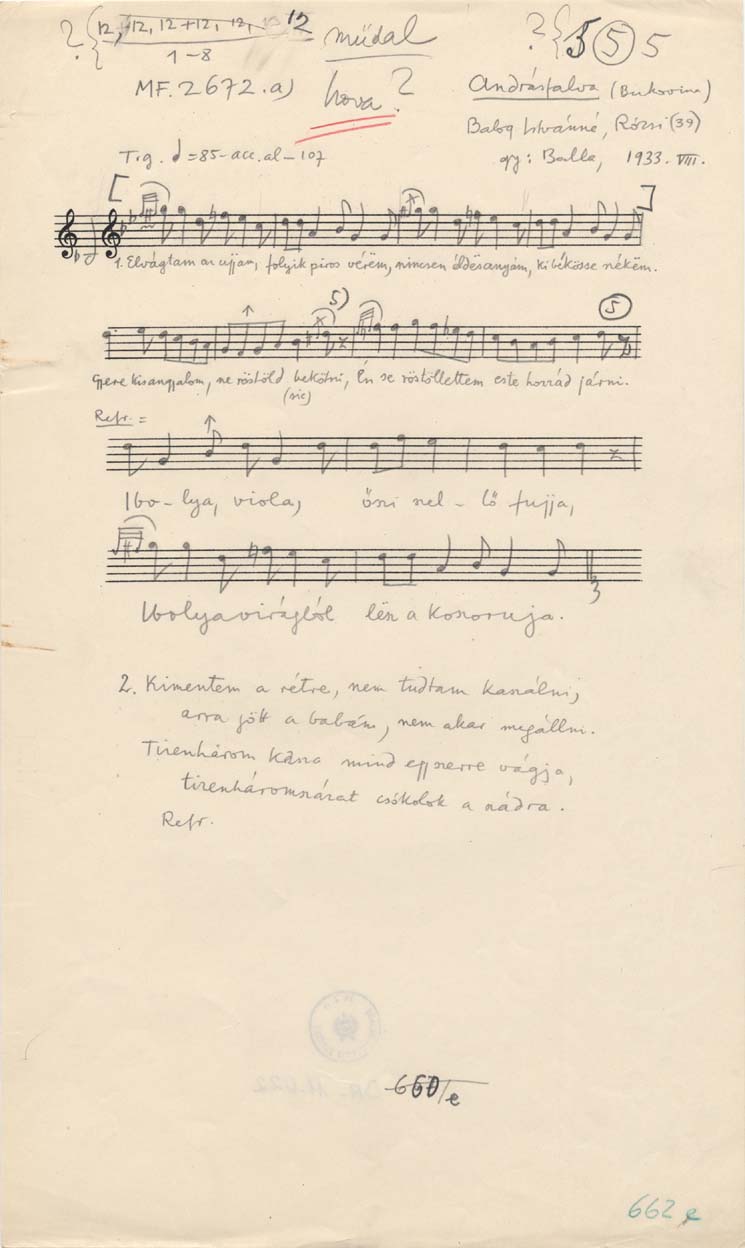 ?{ 12, 12, 12+12, 12, 12 műdal ?{ 5 (5) 5
1-8
MF. 2672. a) hova? Andrásfalva (Bukovina)
Balog Istvánné, Rózsi (39)
T.g. = 85- acc. al - 107 gy: Balla, 1933. VIII.
1. Elvágtam az ujjam, folyik piros vérëm, nincsen áldësanyám, ki békösse nékëm.
5) (5)
Gyere kisangyalom, ne röstöld bekötni, Én se röstöllettem este hozzád járni.
(sic)
Refr. =
Ibo-lya, viola, őszi szel-lő fujja,
Ibolyavirágból lësz a koszoruja.
3
2. Kimentem a rétre, nem tudtam kaszálni,
arra jött a babám, nem akar megállni.
Tizenhárom kasza mind egyszerre vágja,
tizenháromszázat csókolok a szádra.
Refr.
660/e
662 e